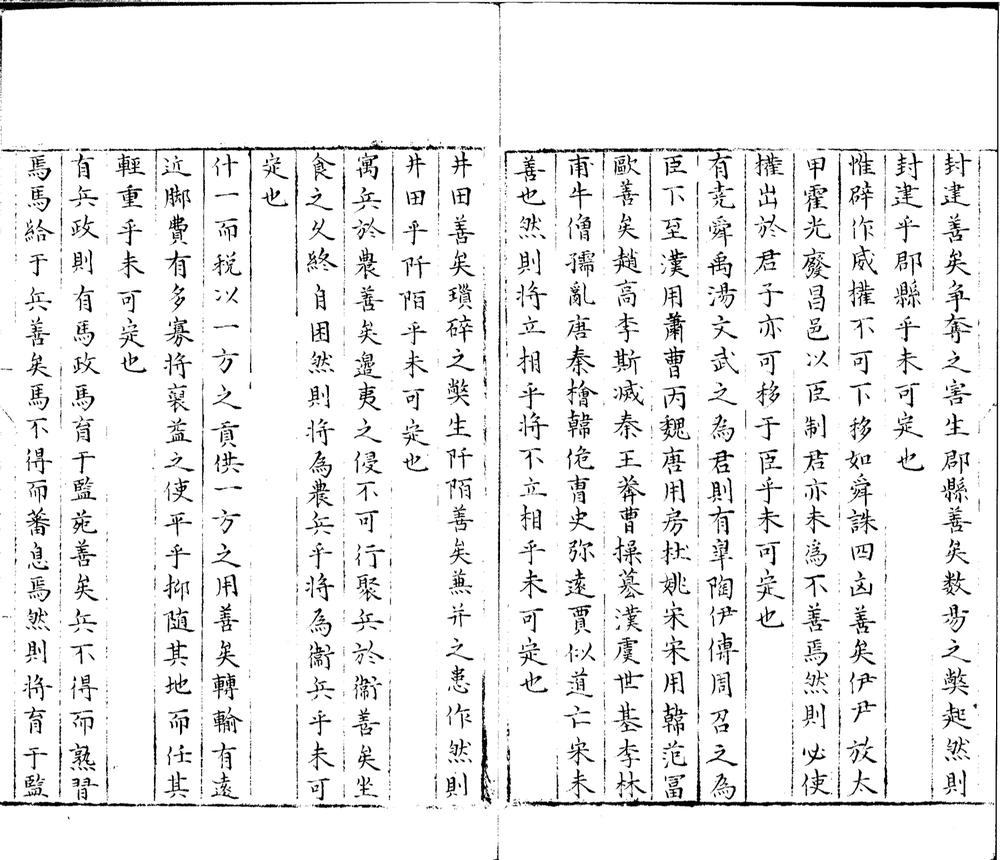 封建善矣争奪之害生郡縣善矣数易之獘起然則
封建乎郡縣乎未可定也
惟辟作威權不可下移如舜誅四凶善矣伊尹放太
甲霍光廢昌邑以臣制君亦未為不善焉然則必使
權出於君子亦可移于臣乎未可定也
有堯舜禹湯文武之為君則有臯陶伊傅周召之為
臣下至漢用蕭曹丙魏唐用房杜姚宋宋用韓范冨
歐善矣趙高李斯滅秦王莽曹操墓漢虞世基李林
甫牛僧孺亂唐秦檜韓侂胄史弥遠賈似道亡宋未
善也然則将立相乎将不立相乎未可定也
井田善矣瑣碎之獘生阡陌善矣兼并之患作然則
井田乎阡陌乎未可定也
寓兵於農善矣邉夷之侵不可行聚兵於衞善矣坐
食之久終自困然則将為農兵乎将為衞兵乎未可
定也
什一而税以一方之貢供一方之用善矣轉輸有遠
近脚費有多寡将裒益之使平乎抑随其地而任其
輕重乎未可定也
有兵政則有馬政馬育于監苑善矣兵不得而熟習
焉馬給于兵善矣馬不得而蕃息焉然則将育于監